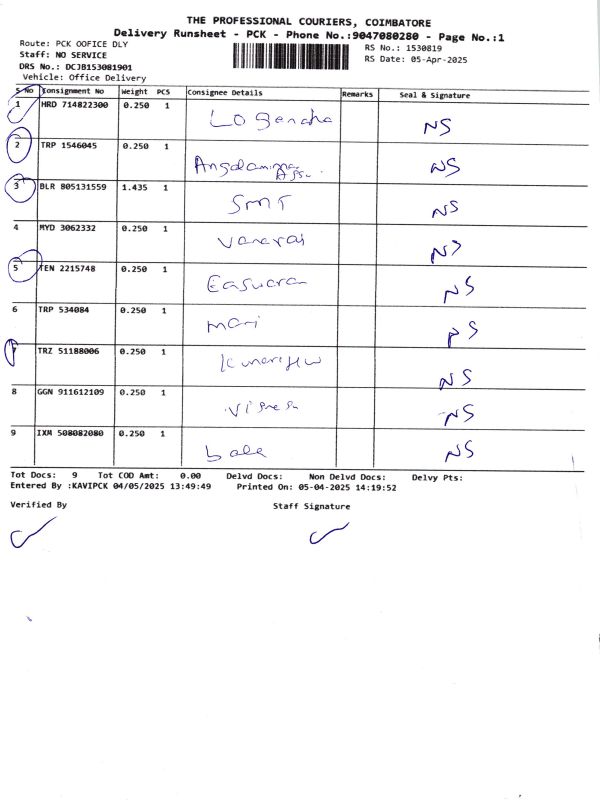 THE PROFESSIONAL COURIERS, COIMBATORE
Delivery Runsheet - PCK - Phone No.:9047080280 - Page No.:1
Route: PCK OOFICE DLY
RS No.: 1530819
Staff: NO SERVICE
RS Date: 05-Apr-2025
DRS No.: DCJB153081901
Vehicle: Office Delivery
S No Consignment No Weight PCS Consignee Details Remarks Seal & Signature
1 HRD 714822300 0.250 1 NS
2 TRP 1546045 0.250 1 NS
3 BLR 805131559 1.435 1 SMT NS
4 MYD 3062332 0.250 1 Vanaraj NS
5 TEN 2215748 0.250 1 Easwaran NS
6 TRP 534084 0.250 1 Mari PS
7 TRZ 51188006 0.250 1 NS
8 GGN 911612109 0.250 1 Vignesh NS
9 IXM 508082080 0.250 1 bala NS
Tot Docs: 9 Tot COD Amt: 0.00 Delvd Docs: Non Delvd Docs: Delvy Pts:
Entered By :KAVIPCK 04/05/2025 13:49:49 Printed On: 05-04-2025 14:19:52
Verified By Staff Signature